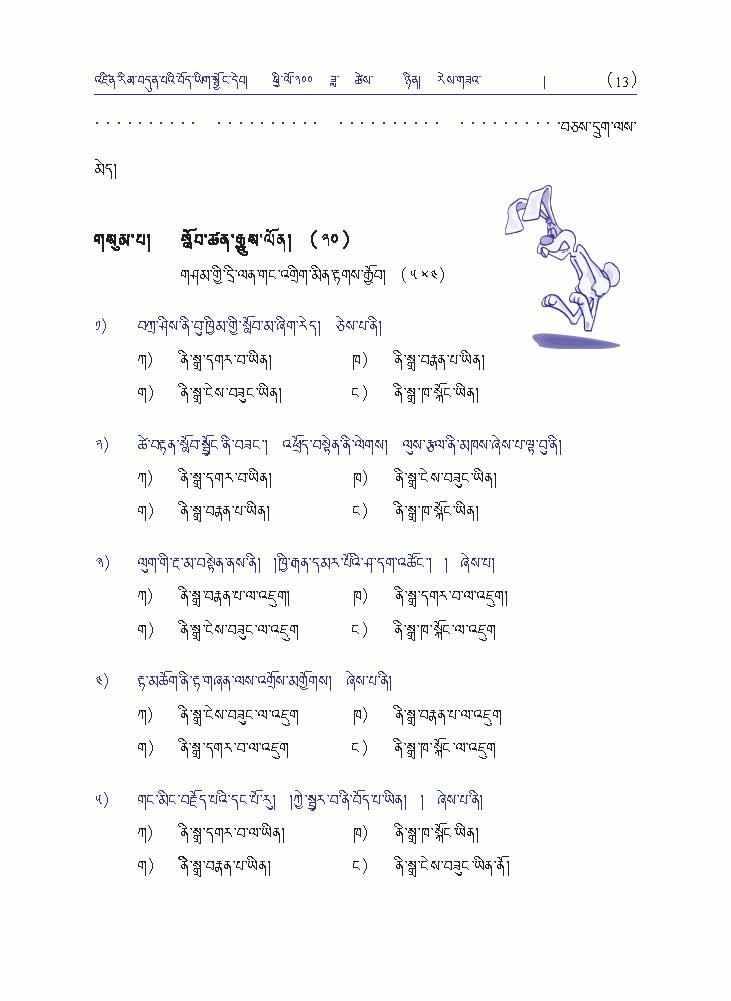 འཛིན་རིམ་བདུན་པའི་བོད་ཡིག་སྦྱོང་དེབ། ཕྱི་ལོ་༢༠༠ ཟླ་ ཚེས་ ཉིན། རེས་གཟའ་ | (13)
. . . . . . . . . . . . . . . . . . . . . . . . . . . . . . . . . . . . . . . . བཅས་དྲུག་ལས་
མེད།
གསུམ་པ། སློབ་ཚན་རྒྱུས་ལོན། (༢༠)
གཤམ་གྱི་དྲི་ལན་གང་འགྲིག་མིན་རྟགས་རྒྱོབ། (༥×༤)
༡) བཀྲ་ཤིས་ནི་བུ་ཁྱིམ་གྱི་སློབ་མ་ཞིག་རེད། ཅེས་པ་ནི།
ཀ) ནི་སྒྲ་དགར་བ་ཡིན། ཁ) ནི་སྒྲ་བརྣན་པ་ཡིན།
ག) ནི་སྒྲ་ངེས་བཟུང་ཡིན། ང) ནི་སྒྲ་ཁ་སྐོང་ཡིན།
༢) ཚེ་བརྟན་སློབ་སྦྱོང་ནི་བཟང་། འཕྲོད་བསྟེན་ནི་ལེགས། ལུས་རྩལ་ནི་མཁས་ཞེས་པ་ལྟ་བུ་ནི།
ཀ) ནི་སྒྲ་དགར་བ་ཡིན། ཁ) ནི་སྒྲ་ངེས་བཟུང་ཡིན།
ག) ནི་སྒྲ་བརྣན་པ་ཡིན། ང) ནི་སྒྲ་ཁ་སྐོང་ཡིན།
༣) ལུག་གི་རྔ་མ་བསྟེན་ནས་ནི། །ཁྱི་རྒན་དམར་པོའི་ཤ་དག་འཚོང་། ། ཞེས་པ།
ཀ) ནི་སྒྲ་བརྣན་པ་ལ་འཇུག། ཁ) ནི་སྒྲ་དགར་བ་ལ་འཇུག།
ག) ནི་སྒྲ་ངེས་བཟུང་ལ་འཇུག ང) ནི་སྒྲ་ཁ་སྐོང་ལ་འཇུག
༤) རྟ་མཆོག་ནི་རྟ་གཞན་ལས་འགྲོས་མགྱོགས། ཞེས་པ་ནི།
ཀ) ནི་སྒྲ་ངེས་བཟུང་ལ་འཇུག ཁ) ནི་སྒྲ་བརྣན་པ་ལ་འཇུག
ག) ནི་སྒྲ་དགར་བ་ལ་འཇུག ང) ནི་སྒྲ་ཁ་སྐོང་ལ་འཇུག
༥) གང་མིང་བརྗོད་པའི་དང་པོ་རུ། །ཀྱེ་སྦྱར་བ་ནི་བོད་པ་ཡིན། ། ཞེས་པ་ནི།
ཀ) ནི་སྒྲ་དགར་བ་ལ་ཡིན། ཁ) ནི་སྒྲ་ཁ་སྐོང་ཡིན།
ག) ནི་སྒྲ་བརྣན་པ་ཡིན། ང) ནི་སྒྲ་ངེས་བཟུང་ཡིན་ནོ།